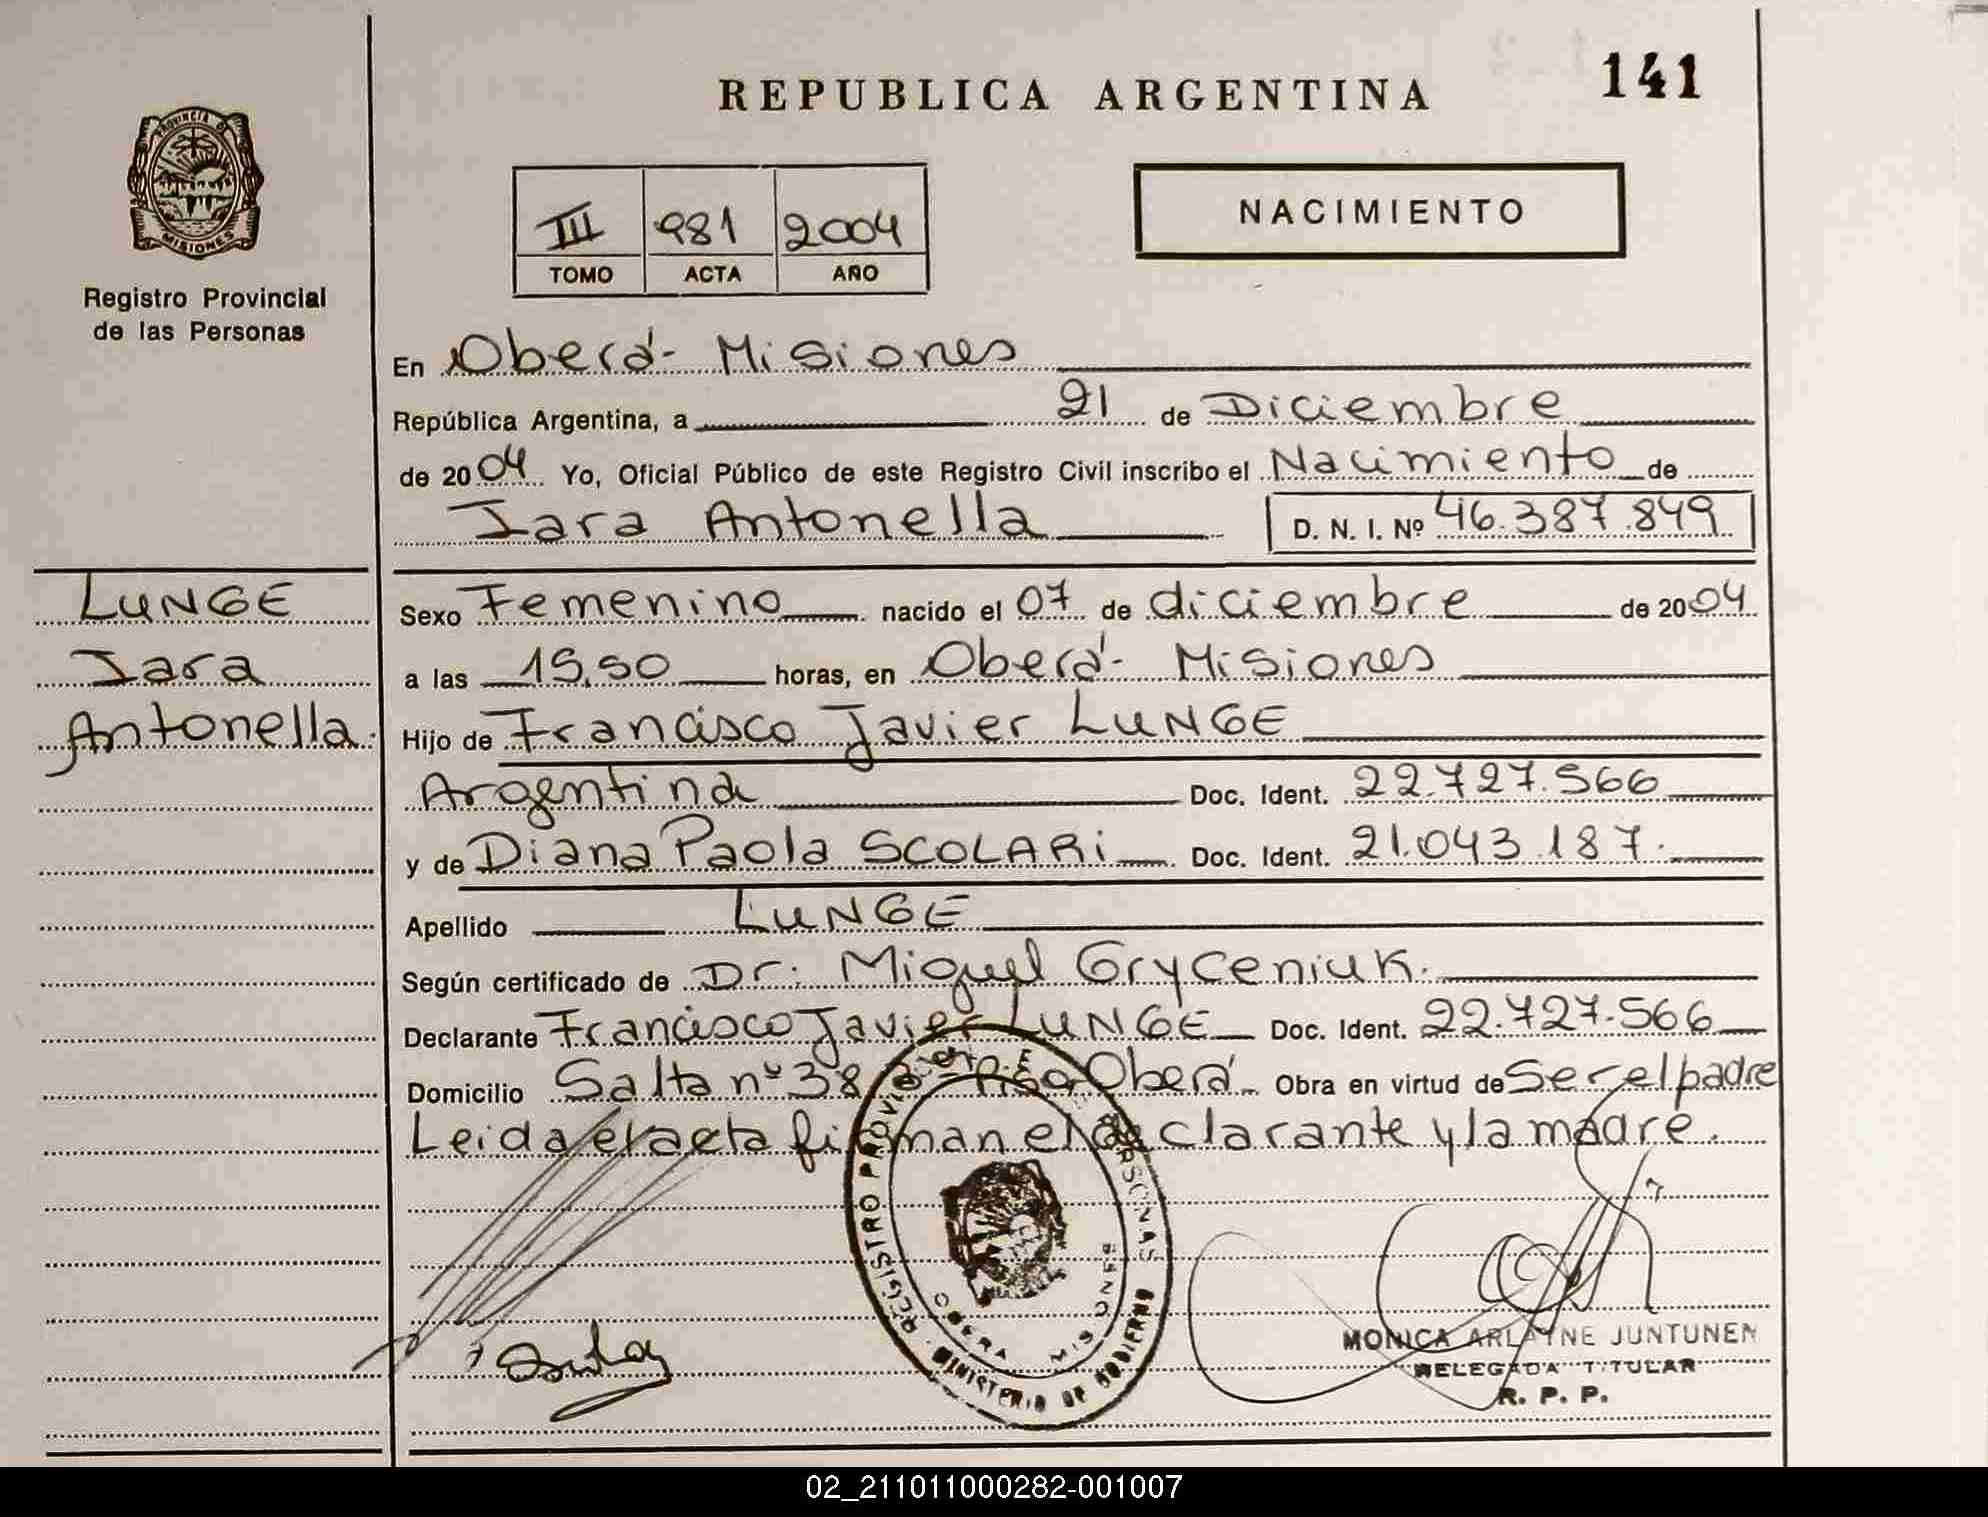 REPUBLICA ARGENTINA
141
PROVINCIA D
MISIONES
Registro Provincial
de las Personas
III 981 2004
TOMO ACTA AÑO
NACIMIENTO
En Oberá - Misiones
República Argentina, a 21 de Diciembre
de 2004 Yo, Oficial Público de este Registro Civil inscribo el Nacimiento de
Iara Antonella D. N. I. Nº 46.387.849
LUNGE
Iara
Antonella.
Sexo Femenino nacido el 07 de diciembre de 2004
a las 15,50 horas, en Oberá - Misiones
Hijo de Francisco Javier LUNGE
Argentina Doc. Ident. 22.727.566
y de Diana Paola SCOLARi Doc. Ident. 21.043.187.
Apellido LUNGE
Según certificado de Dr. Miguel Gryceniuk.
Declarante Francisco Javier LUNGE Doc. Ident. 22.727.566
Domicilio Salta nº 38 Oberá Obra en virtud de Ser el padre
Leida el acta firman el declarante y la madre.
REGISTRO PROVINCIAL DE PERSONAS
OBERA MIS
MINISTERIO DE GOBIERNO
MONICA ARLAYNE JUNTUNEN
DELEGADA TITULAR
R. P. P.
02_211011000282-001007